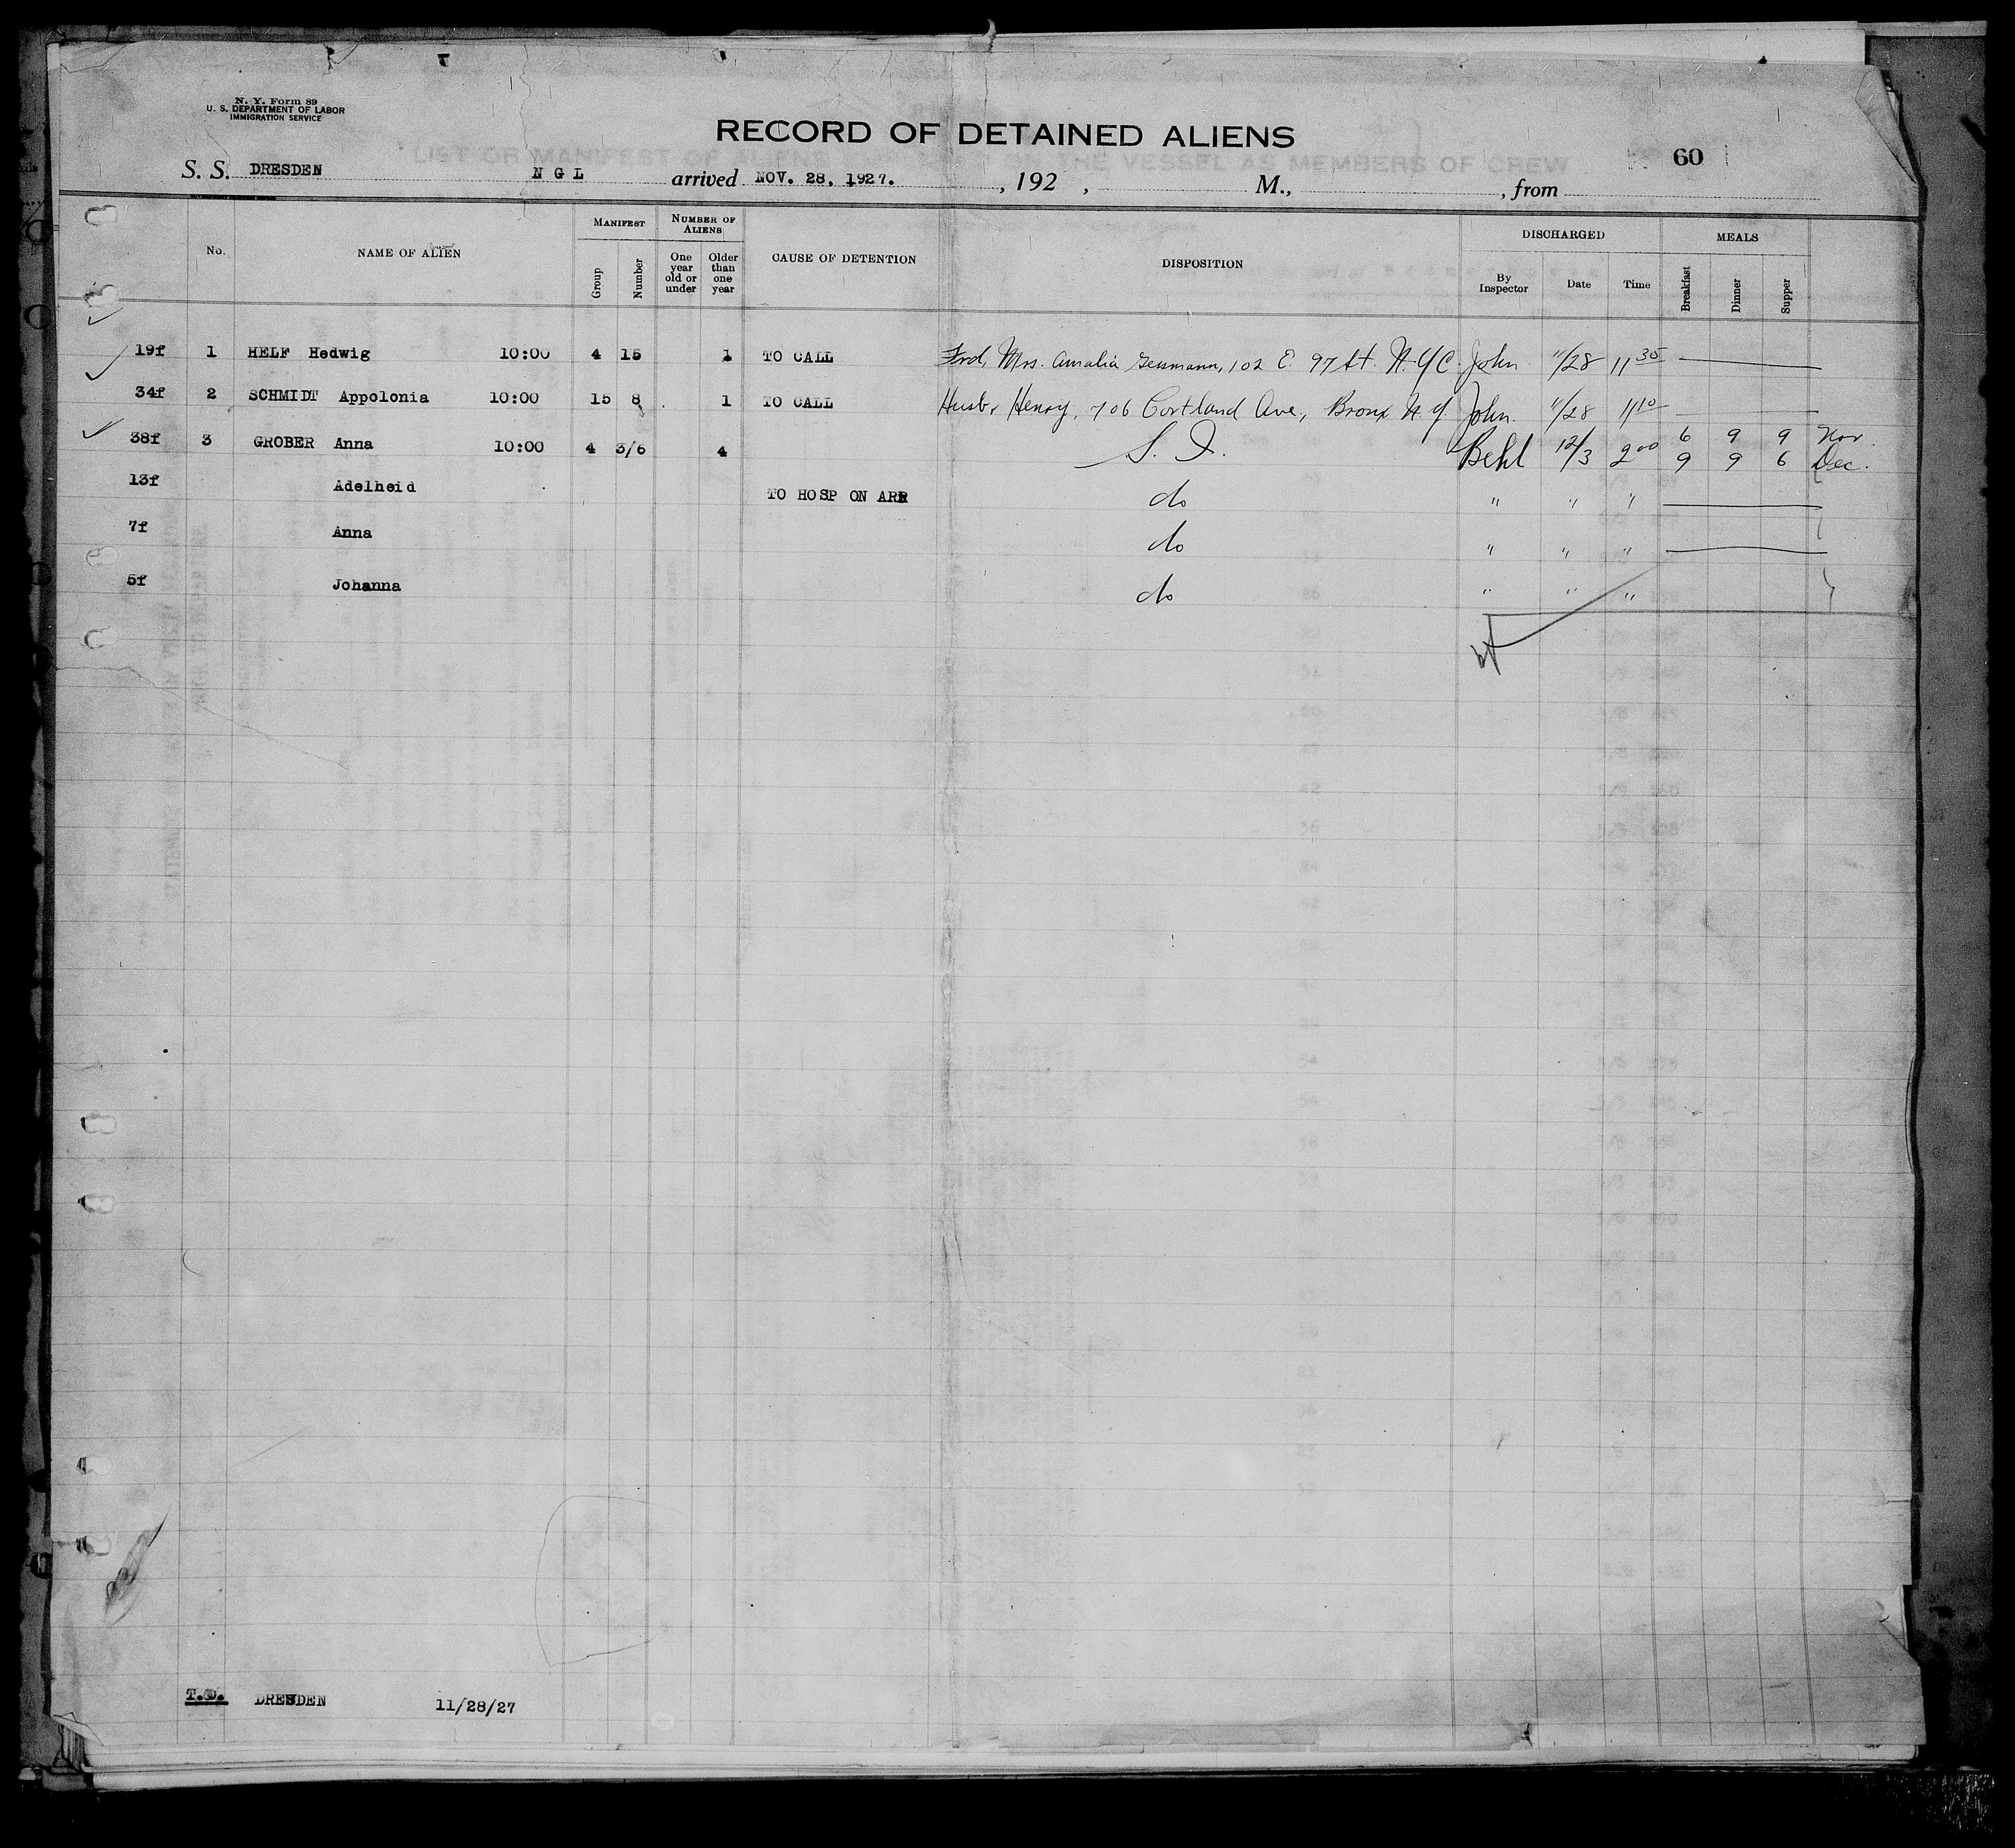 N. Y. Form 89
U. S. DEPARTMENT OF LABOR
IMMIGRATION SERVICE
RECORD OF DETAINED ALIENS
60
S. S. DRESDEN N G L arrived NOV. 28, 1927. , 192 , M., , from
No. NAME OF ALIEN MANIFEST NUMBER OF ALIENS CAUSE OF DETENTION DISPOSITION DISCHARGED MEALS
Group Number One year old or under Older than one year By Inspector Date Time Breakfast Dinner Supper
19f 1 HELF Hedwig 10:00 4 15 1 TO CALL Frd, Mrs. Amalia 102 E. 97 St. N.Y.C. John 11/28 11 35
34f 2 SCHMIDT Appolonia 10:00 15 8 1 TO CALL Husb, Henry, 706 Cortland Ave, Bronx N.Y. John. 11/28 11 10
38f 3 GROBER Anna 10:00 4 3/6 4 S. I. Behl 12/3 2 00 6 9 9 Nov.
9 9 6 Dec.
13f Adelheid TO HOSP ON ARR do " " "
7f Anna do " " "
5f Johanna do " " "
T.D. DRESDEN 11/28/27